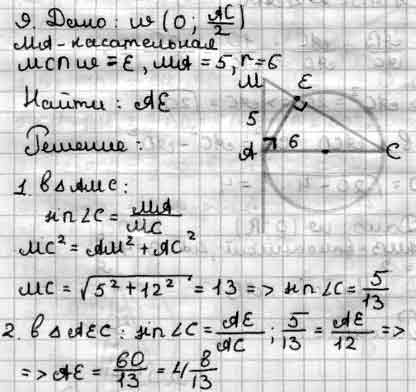 9. Дано: w (O; AC/2)
MA - касательная
MC∩w = E, MA = 5, r = 6
Найти: AE
M E
5
Решение:
A 6 C
1. В △AMC:
sin∠C = MA/MC
MC² = AM² + AC²
MC = √(5² + 12²) = 13 => sin∠C = 5/13
2. В △AEC: sin∠C = AE/AC ; 5/13 = AE/12 =>
=> AE = 60/13 = 4 8/13